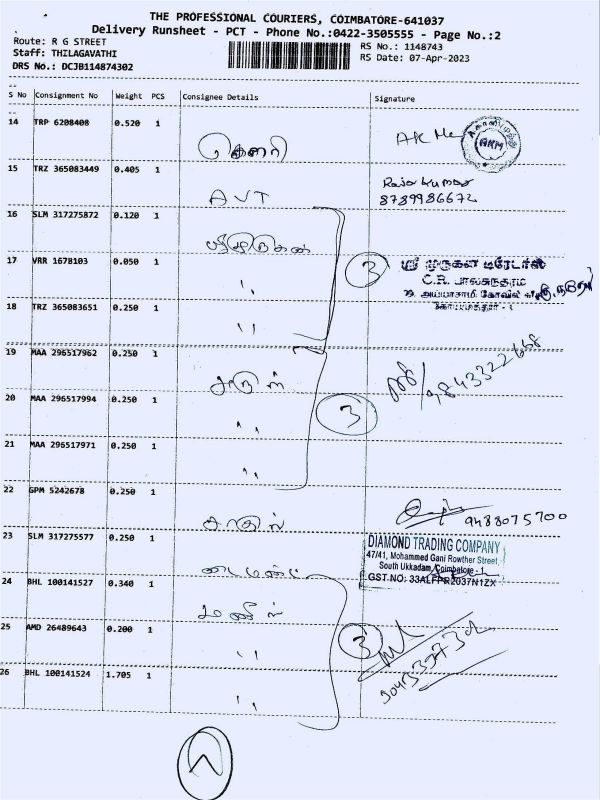 THE PROFESSIONAL COURIERS, COIMBATORE-641037
Delivery Runsheet - PCT - Phone No.:0422-3505555 - Page No.:2
Route: R G STREET
RS No.: 1148743
Staff: THILAGAVATHI
RS Date: 07-Apr-2023
DRS No.: DCJB114874302
S No Consignment No Weight PCS Consignee Details Signature
14 TRP 6208408 0.520 1
கௌரி
15 TRZ 365083449 0.405 1 Rajkumar
AVT 8789986672
16 SLM 317275872 0.120 1
17 VRR 1678103 0.050 1 3 ஸ்ரீ முருகன் டிரேடர்ஸ்
,, C.R. பாலசுந்தரம்
18 TRZ 365083651 0.250 1
,,
19 MAA 296517962 0.250 1
அருள் 9843322668
20 MAA 296517994 0.250 1 3
,,
21 MAA 296517971 0.250 1
,,
22 GPM 5242678 0.250 1
9488075700
23 SLM 317275577 0.250 1 DIAMOND TRADING COMPANY
47/41, Mohammed Gani Rowther Street,
South Ukkadam, Coimbatore - 1.
டைமண்ட் GST NO: 33ALFPR2037N1ZX
24 BHL 100141527 0.340 1
25 AMD 26489643 0.200 1 3
,,
26 BHL 100141524 1.705 1
,,